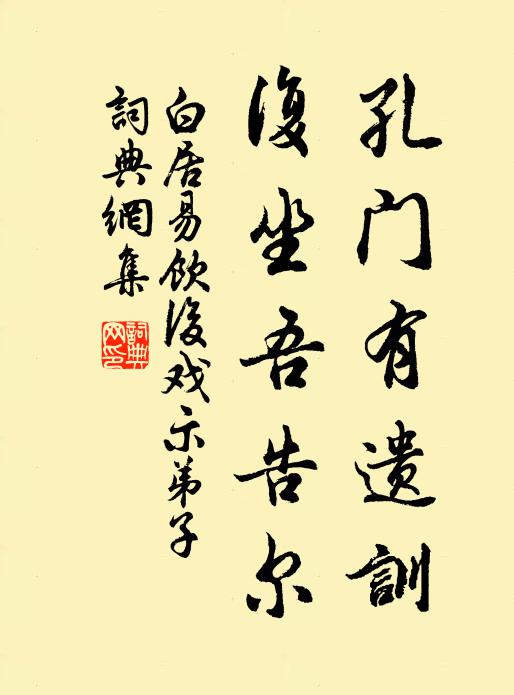 孔门有遗訓
復坐吾告尔
白居易飲後戏示弟子
詞典網集
詞典网印